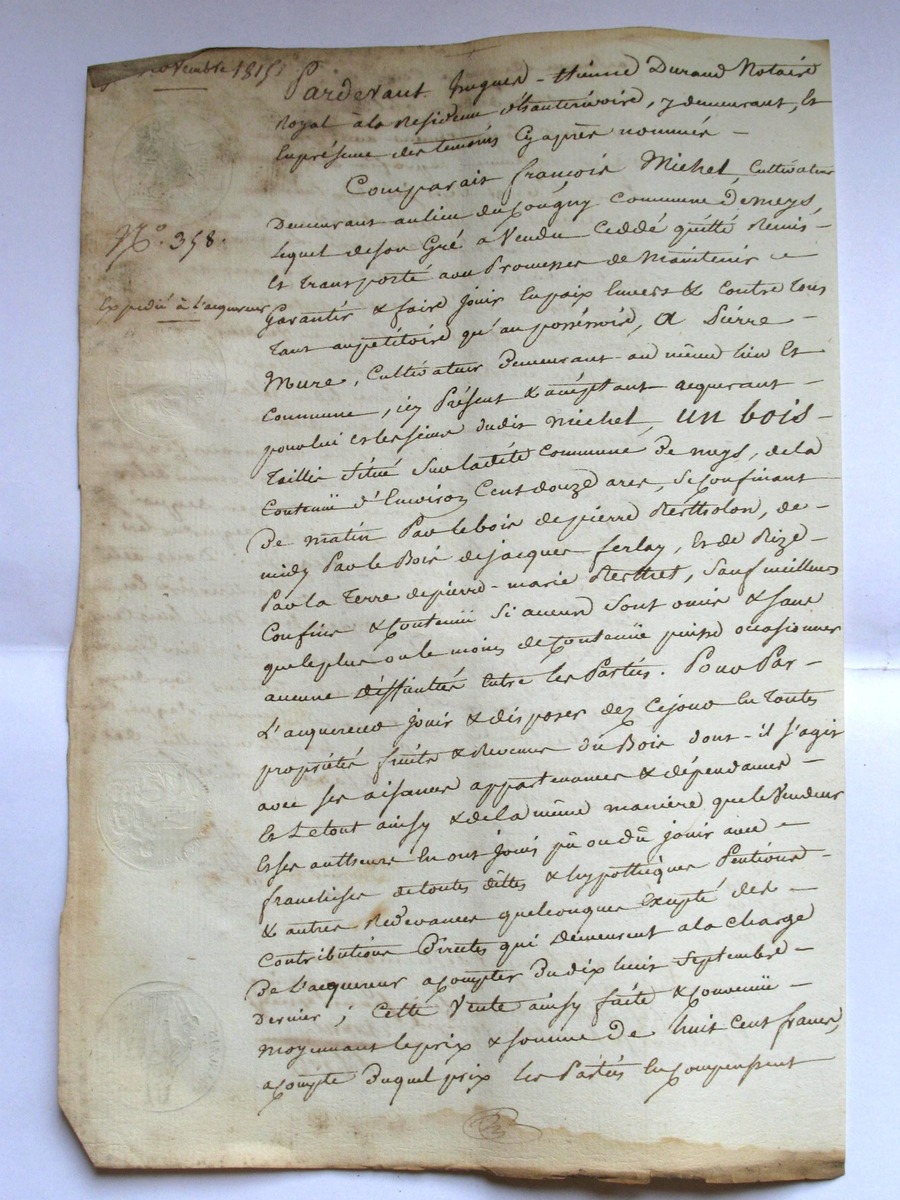 novembre 1815
N.o 358.
Expedié à l'acquereur
Pardevant hugues-Etienne Durand Notaire
Royal à la Residence d'hauterivoire, y demeurant, Et
En présence des temoins Cyaprès nommés –
Comparait françois Michel, Cultivateur
Demeurant au lieu du Cougny Commune De meys,
lequel de son Gré a Vendu Ceddé quitté Remis –
Et Transporté avec Promesses de Maintenir –
Garantir & faire jouir En paix Envers & Contre Tous
Tant au petitoire qu'au posséssoire, A Pierre –
Mure, Cultivateur Demeurant au même lieu Et
Commune, icy Présent & acceptant acquerant –
pour lui et les siens dudit Michel, un bois –
Taillis situé Sur la dite Commune De meys, de la
Contenüe d'Environ Cent douze ares, Se Confinant
De matin Par le bois de pierre Bertholon, de –
midy Par le Bois de jacques ferlay, Et de Bize –
Par la Terre de pierre-marie Berthet, Sauf meilleurs
Confins & Contenüe Si aucuns Sont omis & sans
que le plus ou le moins de Contenüe puisse ocasionner
aucune difficultés Entre les Parties. Pour Par –
L'acquereur jouir & disposer dez Cejour En Toutes
propriétés fruits & Revenus du Bois dont-il s'agit
avec ses aisances appartenances & dépendances –
Et Le tout ainsy & de la même manière que le Vendeur
Et ses autheurs En ont jouis pû ou dû jouir avec –
franchises de toutes dettes & hypothèques Pentions –
& autres Redevances quelconques Excepté des –
Contributions Directes qui Demeurent a la charge
De l'acquereur a Compter Du dix huit Septembre –
Dernier ; Cette Vente ainsy faite & Convenüe –
Moyennant le prix & somme De huit Cent francs,
a Compte Duquel prix les Parties En Compensent